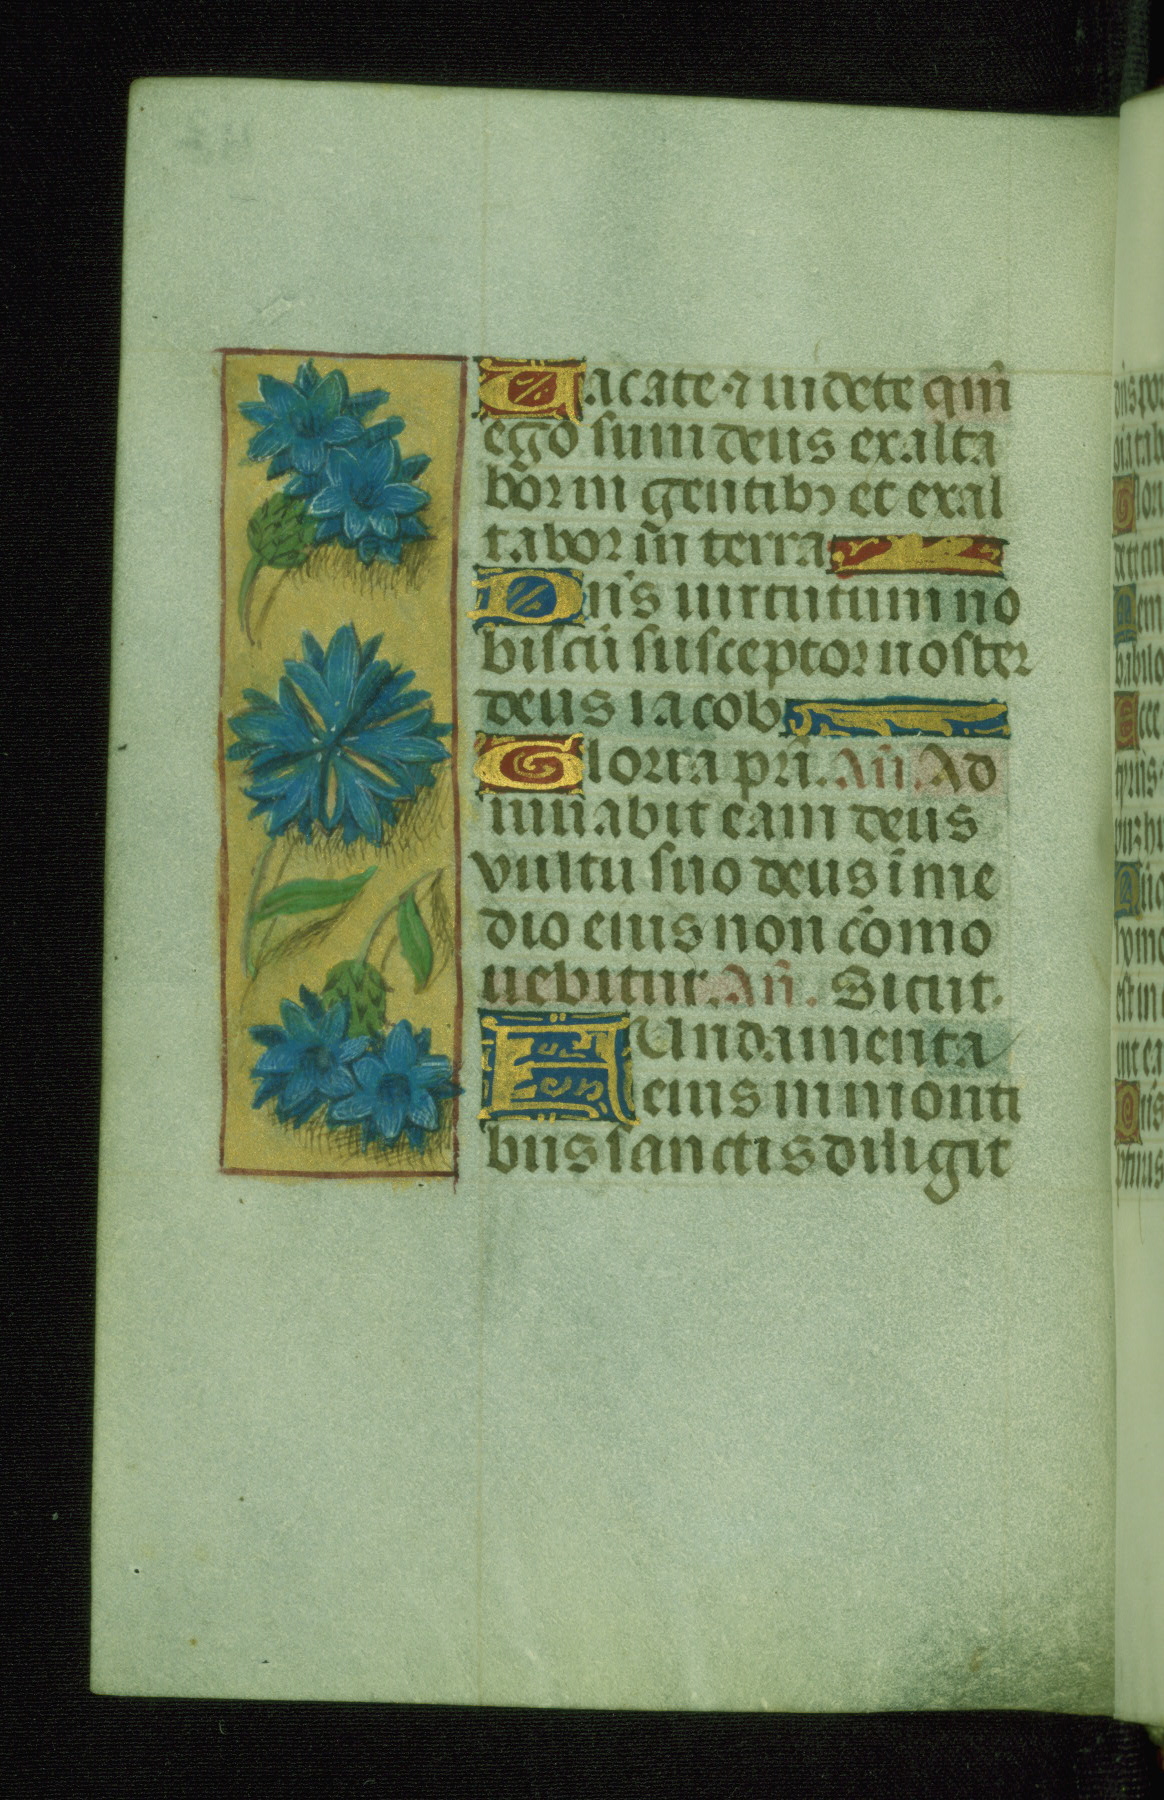 Vacate ⁊ uidete qm̄
ego sum deus exalta
bor in gentibꝰ et exal
tabor in terra
Dn̄s uirtutum no
biscū susceptor noster
deus iacob
Gloria pr̄i. Añ. Ad
iuuabit eam deus
vultu suo deus ī me
dio eius non cōmo
uebitur. Añ. Sicut.
Fundamenta
eius in monti
bus sanctis diligit